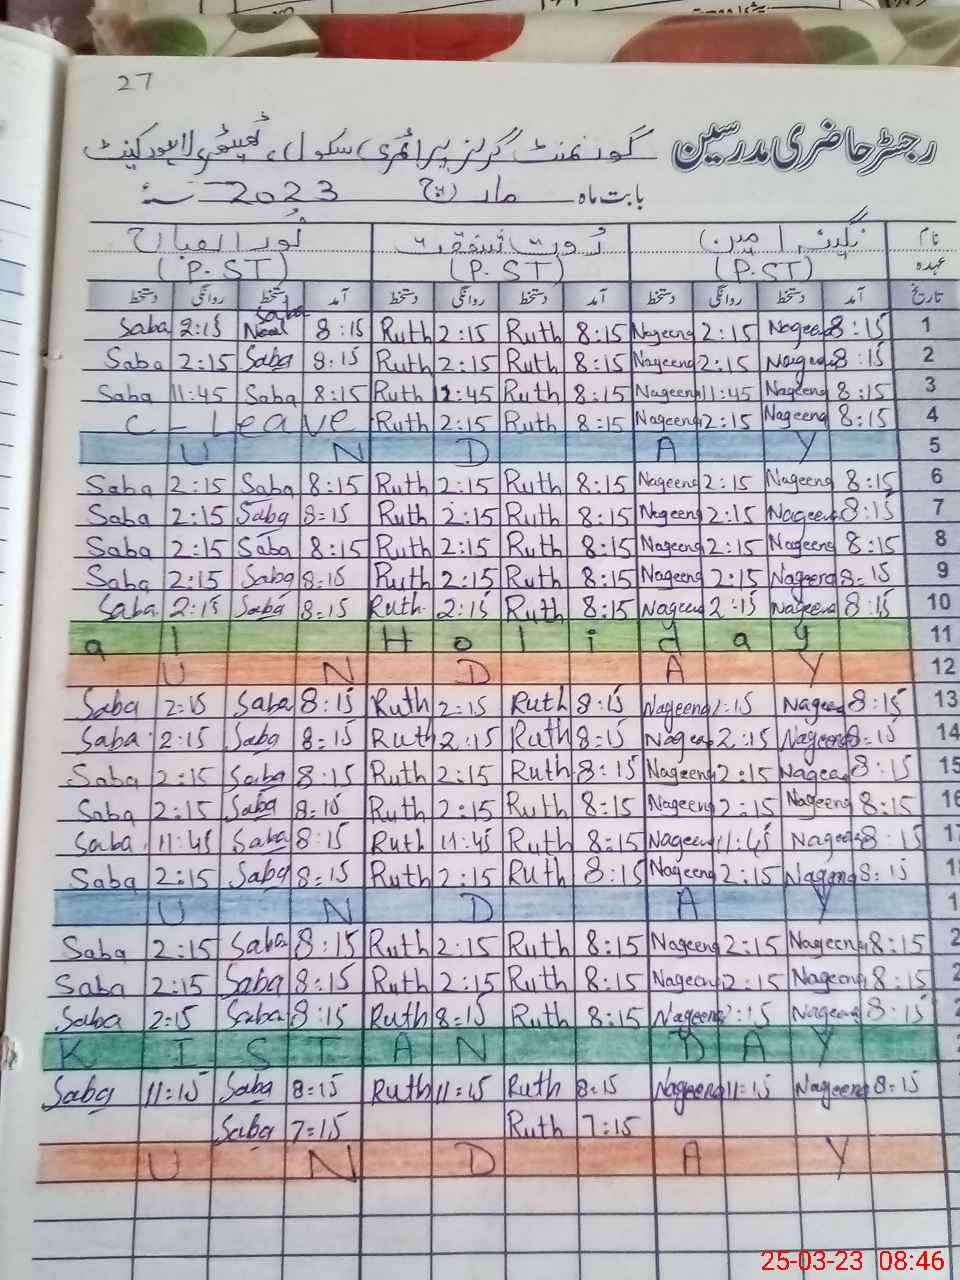 27
رجسٹر حاضری مدرسین گورنمنٹ گرلز پرائمری سکول، لاہور کینٹ
بابت ماہ مارچ 2023 سنہ
نام نگینہ امین روت شفقت نور الصباح
عہدہ (P.ST) (P.ST) (P.ST)
تاریخ آمد دستخط روانگی دستخط آمد دستخط روانگی دستخط آمد دستخط روانگی دستخط
Saba 2:15 Saba 8:15 Ruth 2:15 Ruth 8:15 Nageeng 2:15 Nageeng 8:15 1
Saba 2:15 Saba 8:15 Ruth 2:15 Ruth 8:15 Nageeng 2:15 Nageeng 8:15 2
Saba 11:45 Saba 8:15 Ruth 11:45 Ruth 8:15 Nageeng 11:45 Nageeng 8:15 3
C - Leave Ruth 2:15 Ruth 8:15 Nageeng 2:15 Nageeng 8:15 4
U N D A Y 5
Saba 2:15 Saba 8:15 Ruth 2:15 Ruth 8:15 Nageeng 2:15 Nageeng 8:15 6
Saba 2:15 Saba 8:15 Ruth 2:15 Ruth 8:15 Nageeng 2:15 Nageeng 8:15 7
Saba 2:15 Saba 8:15 Ruth 2:15 Ruth 8:15 Nageeng 2:15 Nageeng 8:15 8
Saba 2:15 Saba 8:15 Ruth 2:15 Ruth 8:15 Nageeng 2:15 Nageeng 8:15 9
Saba 2:15 Saba 8:15 Ruth 2:15 Ruth 8:15 Nageeng 2:15 Nageeng 8:15 10
a l H o l i d a y 11
U N D A Y 12
Saba 2:15 Saba 8:15 Ruth 2:15 Ruth 8:15 Nageeng 2:15 Nageeng 8:15 13
Saba 2:15 Saba 8:15 Ruth 2:15 Ruth 8:15 Nageeng 2:15 Nageeng 8:15 14
Saba 2:15 Saba 8:15 Ruth 2:15 Ruth 8:15 Nageeng 2:15 Nageeng 8:15 15
Saba 2:15 Saba 8:15 Ruth 2:15 Ruth 8:15 Nageeng 2:15 Nageeng 8:15 16
Saba 11:45 Saba 8:15 Ruth 11:45 Ruth 8:15 Nageeng 11:45 Nageeng 8:15 17
Saba 2:15 Saba 8:15 Ruth 2:15 Ruth 8:15 Nageeng 2:15 Nageeng 8:15 1
U N D A Y 1
Saba 2:15 Saba 8:15 Ruth 2:15 Ruth 8:15 Nageeng 2:15 Nageeng 8:15 2
Saba 2:15 Saba 8:15 Ruth 2:15 Ruth 8:15 Nageeng 2:15 Nageeng 8:15 2
Saba 2:15 Saba 8:15 Ruth 8:15 Ruth 8:15 Nageeng 2:15 Nageeng 8:15 2
K I S T A N D A Y
Saba 11:15 Saba 8:15 Ruth 11:15 Ruth 8:15 Nageeng 11:15 Nageeng 8:15
Saba 7:15 Ruth 7:15
U N D A Y
25-03-23 08:46